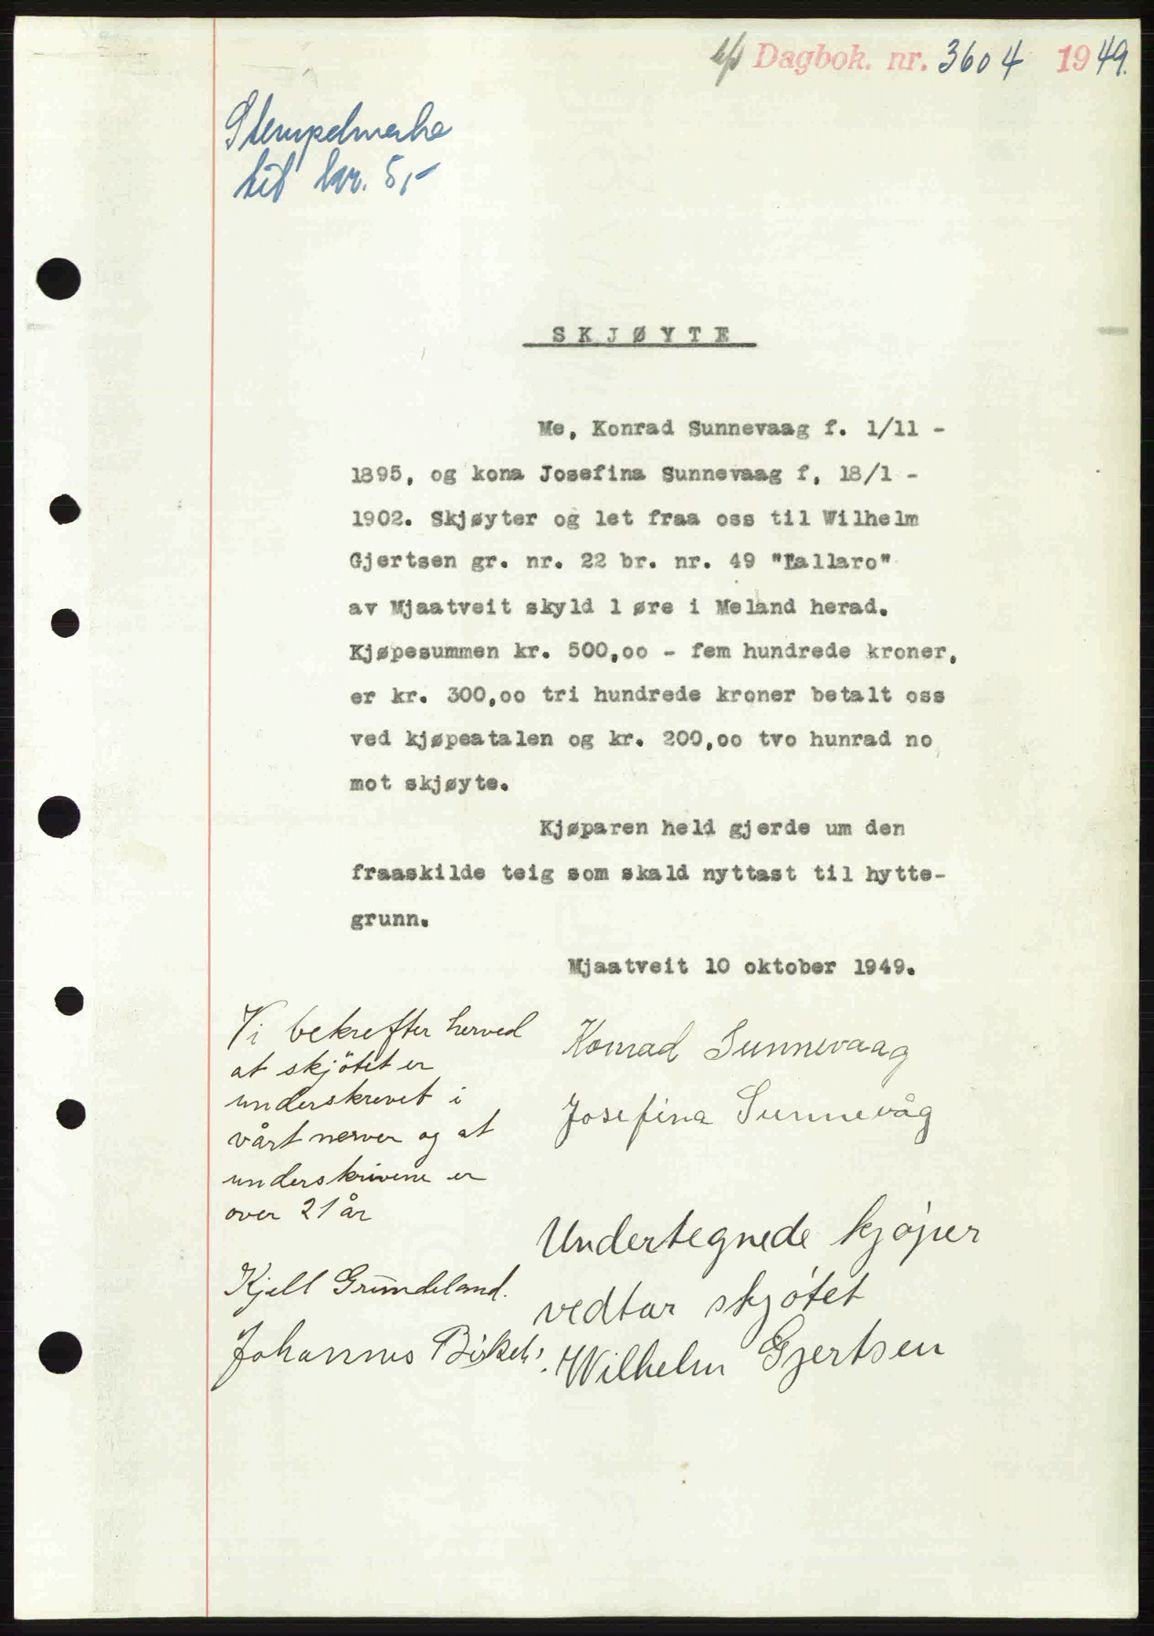 Dagbok. nr. 3604 1949.
Stempelmerke
til kr. 5,-
SKJØYTE
Me, Konrad Sunnevaag f. 1/11 -
1895, og kona Josefina Sunnevaag f, 18/1 -
1902. Skjøyter og let fraa oss til Wilhelm
Gjertsen gr. nr. 22 br. nr. 49 "Hallaro"
av Mjaatveit skyld 1 øre i Meland herad.
Kjøpesummen kr. 500,oo - fem hundrede kroner,
er kr. 300,oo tri hundrede kroner betalt oss
ved kjøpeatalen og kr. 200,oo tvo hunrad no
mot skjøyte.
Kjøparen held gjerde um den
fraaskilde teig som skald nyttast til hytte-
grunn.
Mjaatveit 10 oktober 1949.
Konrad Sunnevaag
Josefina Sunnevåg
Vi bekrefter herved
at skjötet er
underskrevet i
vårt nerver og at
underskrivene er
over 21 år
Kjell Grundeland.
Johannes
Undertegnede kjøper
vedtar skjøtet
Wilhelm Gjertsen